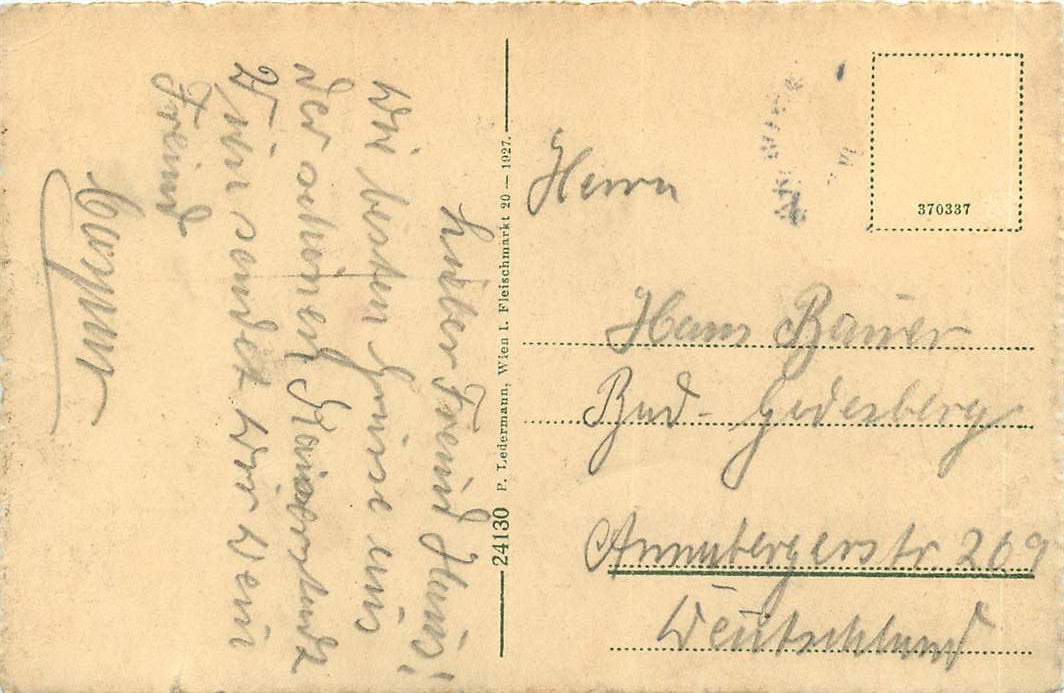 Lieber Freund Hans!
Die besten Grüsse aus
der schönen Kaiserstadt
Wien sendet Dir Dein
Freund
24130 P. Ledermann, Wien I. Fleischmarkt 20 — 1927.
370337
Herrn
Hans Bauer
Bad-Godesberg
Annabergerstr. 269
Deutschland